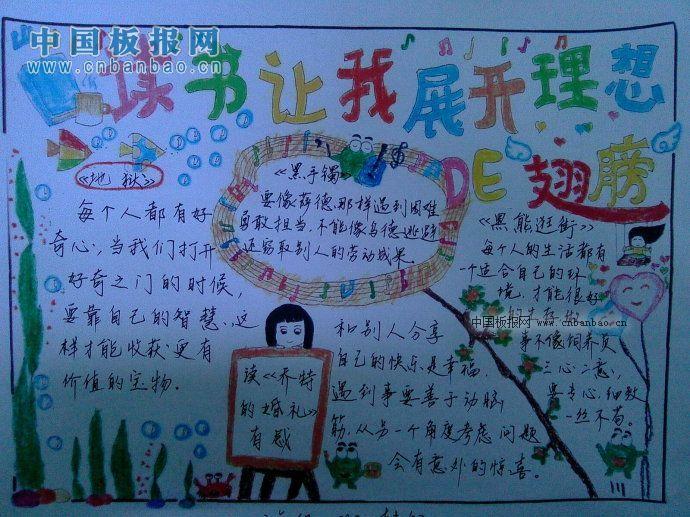 中国板报网
www.cnbanbao.cn
读书让我展开理想
DE 翅膀
《地狱》
每个人都有好
奇心,当我们打开
好奇之门的时候,
要靠自己的智慧,这
样才能收获更有
价值的宝物。
《黑手镯》
要像萨德那样遇到困难
勇敢担当,不能像乌德逃避
还窃取别人的劳动成果
《黑熊逛街》
每个人的生活都有
一个适合自己的环
境,才能很好
中国板报网 www.cnbanbao.cn
事不像饲养员
三心二意,
要专心,细致
一丝不苟。
读《乔特
的婚礼》
有感
和别人分享
自己的快乐是幸福,
遇到事要善于动脑
筋,从另一个角度考虑问题
会有意外的惊喜。